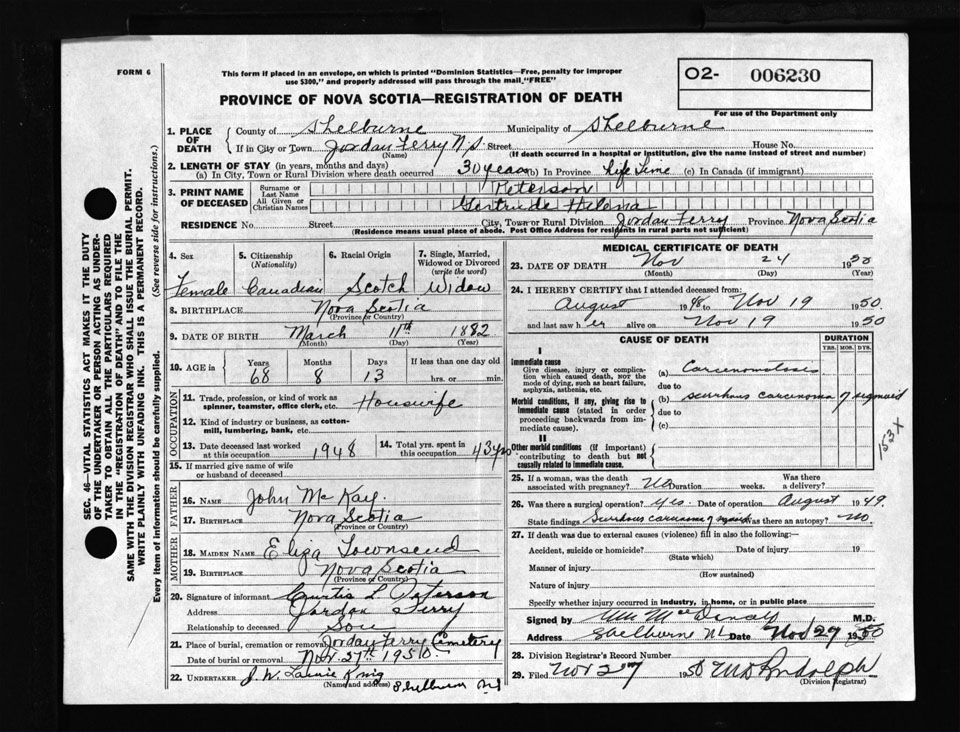 FORM 6
This form if placed in an envelope, on which is printed "Dominion Statistics—Free, penalty for improper
use $300," and properly addressed will pass through the mail, "FREE"
O2- 006230
For use of the Department only
PROVINCE OF NOVA SCOTIA—REGISTRATION OF DEATH
SEC. 46—VITAL STATISTICS ACT MAKES IT THE DUTY
OF THE UNDERTAKER OR PERSON ACTING AS UNDER-
TAKER TO OBTAIN ALL THE PARTICULARS REQUIRED
IN THE "REGISTRATION OF DEATH" AND TO FILE THE
SAME WITH THE DIVISION REGISTRAR WHO SHALL ISSUE THE BURIAL PERMIT.
WRITE PLAINLY WITH UNFADING INK. THIS IS A PERMANENT RECORD.
Every item of information should be carefully supplied. (See reverse side for instructions.)
1. PLACE OF DEATH County of Shelburne Municipality of Shelburne
If in City or Town Jordan Ferry N.S. Street House No.
(Name) (If death occurred in a hospital or institution, give the name instead of street and number)
2. LENGTH OF STAY (in years, months and days)
(a) In City, Town or Rural Division where death occurred 30 years (b) In Province Life Time (c) In Canada (if immigrant)
3. PRINT NAME OF DECEASED Surname or Last Name Peterson
All Given or Christian Names Gertrude Helena
RESIDENCE No. Street City, Town or Rural Division Jordan Ferry Province Nova Scotia
(Residence means usual place of abode. Post Office Address for residents in rural parts not sufficient)
4. Sex 5. Citizenship (Nationality) 6. Racial Origin 7. Single, Married, Widowed or Divorced (write the word)
Female Canadian Scotch Widow
8. BIRTHPLACE Nova Scotia
(Province or Country)
9. DATE OF BIRTH March 11th 1882
(Month) (Day) (Year)
10. AGE in Years Months Days If less than one day old
68 8 13 hrs. or min.
OCCUPATION
11. Trade, profession, or kind of work as spinner, teamster, office clerk, etc. Housewife
12. Kind of industry or business, as cotton-mill, lumbering, bank, etc.
13. Date deceased last worked at this occupation 1948 14. Total yrs. spent in this occupation 43 yrs
15. If married give name of wife or husband of deceased
FATHER
16. NAME John McKay.
17. BIRTHPLACE Nova Scotia
(Province or Country)
MOTHER
18. MAIDEN NAME Eliza Townsend
19. BIRTHPLACE Nova Scotia
(Province or Country)
20. Signature of informant Curtis L Peterson
Address Jordan Ferry
Relationship to deceased Son
21. Place of burial, cremation or removal Jordan Ferry Cemetery
Date of burial or removal Nov. 27th 1950.
22. UNDERTAKER J. W. King
(Name and address) Shelburne NS
MEDICAL CERTIFICATE OF DEATH
23. DATE OF DEATH Nov 24 1950
(Month) (Day) (Year)
24. I HEREBY CERTIFY that I attended deceased from:
August 1948 to Nov 19 1950
and last saw her alive on Nov 19 1950
CAUSE OF DEATH DURATION
YRS. MOS. DYS.
I
Immediate cause
Give disease, injury or complication which caused death, NOT the mode of dying, such as heart failure, asphyxia, asthenia, etc.
(a) Carcinomatosis
due to
Morbid conditions, if any, giving rise to immediate cause (stated in order proceeding backwards from immediate cause).
(b) scirrhous carcinoma of sigmoid
due to
(c)
153X
II
Other morbid conditions (if important) contributing to death but not causally related to immediate cause.
25. If a woman, was the death associated with pregnancy? No Duration weeks. Was there a delivery?
26. Was there a surgical operation? Yes. Date of operation August 1949.
State findings Scirrhous carcinoma of sigmoid Was there an autopsy? No.
27. If death was due to external causes (violence) fill in also the following:—
Accident, suicide or homicide? Date of injury 19
(State which)
Manner of injury
(How sustained)
Nature of injury
Specify whether injury occurred in industry, in home, or in public place
Signed by M.D.
Address Shelburne NS Date Nov 27 1950
28. Division Registrar's Record Number
29. Filed Nov 27 1950 Rudolph
(Division Registrar)